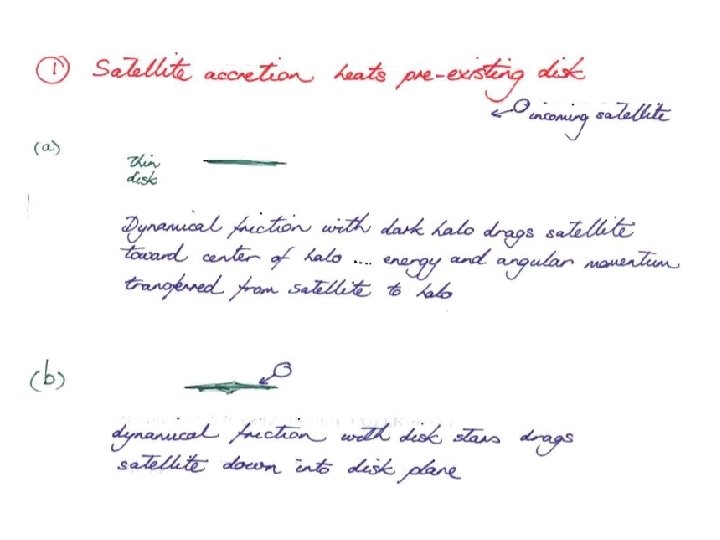 ① Satellite accretion heats pre-existing disk
incoming satellite
(a)
Thin
disk
Dynamical friction with dark halo drags satellite
toward center of halo .... energy and angular momentum
transferred from satellite to halo
(b)
dynamical friction with disk stars drags
satellite down into disk plane